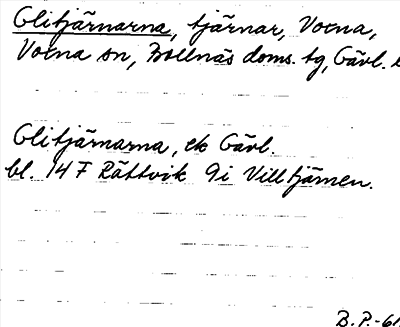 Glitjärnarna, tjärnar, Voxna,
Voxna sn, Bollnäs doms. tg, Gävl. l
Glitjärnarna, ek Gävl.
bl. 14 F Rättvik 9i Villtjärnen.
B. P.-61